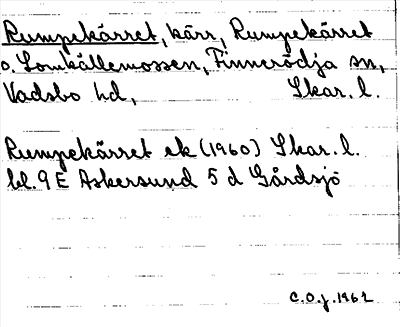 Rumpekärret, kärr, Rumpekärret
o. Lomkällemossen, Finnerödja sn,
Vadsbo hd, Skar. l.
Rumpekärret ek (1960) Skar. l.
bl. 9 E Askersund 5 d Gårdsjö
C.O.J. 1962